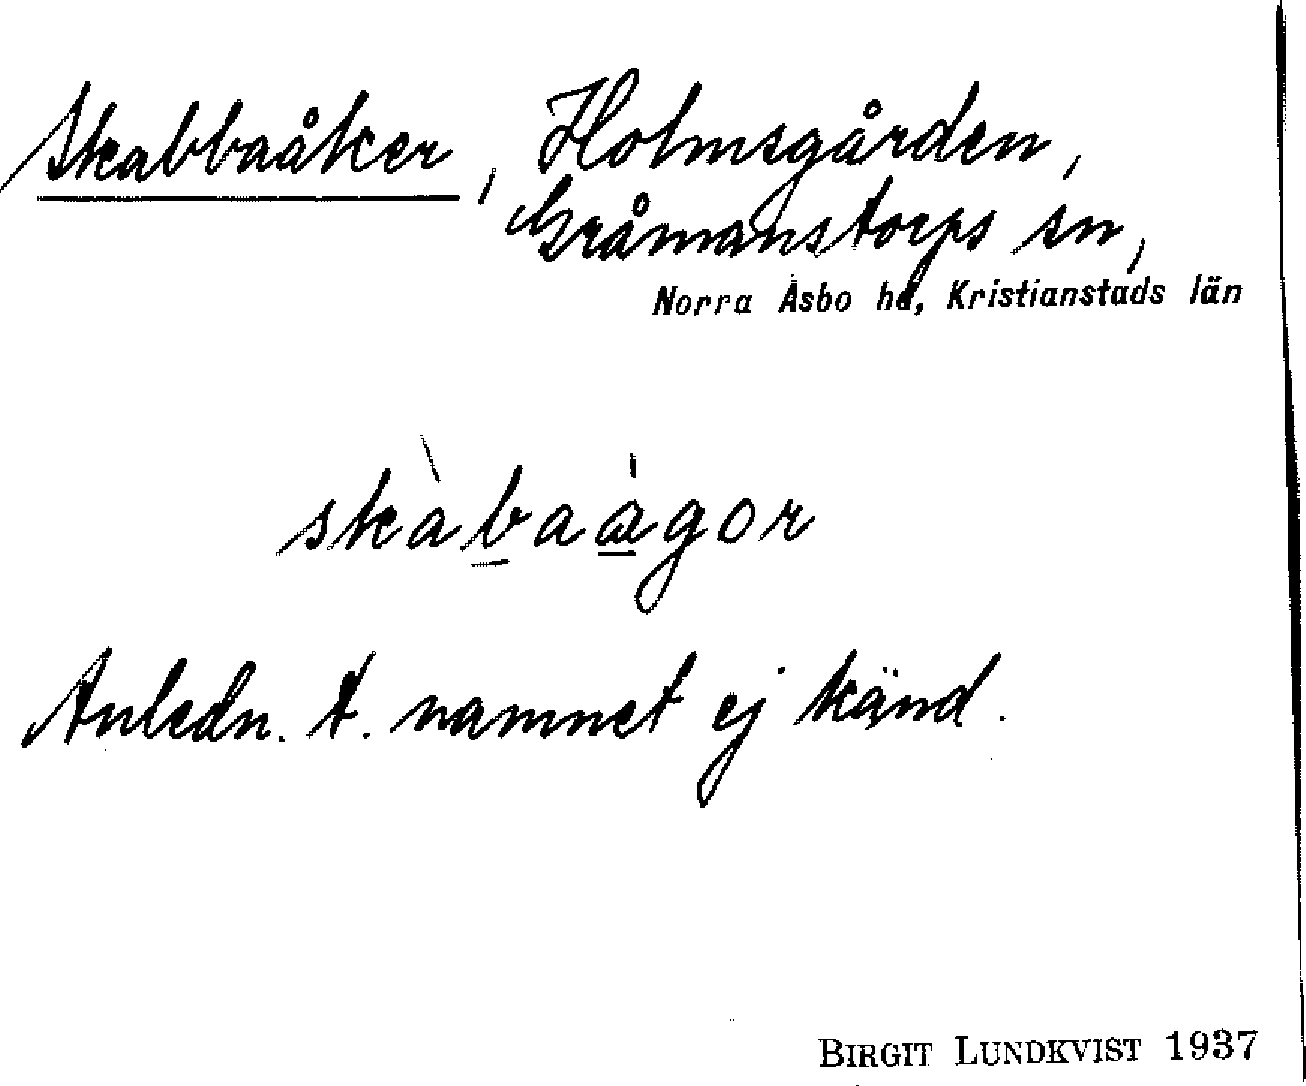 Skabbaåker, Holmsgården,
Gråmanstorps sn,
Norra Åsbo hd, Kristianstads län
skàbaågor
Anledn. t. namnet ej känd.
BIRGIT LUNDKVIST 1937